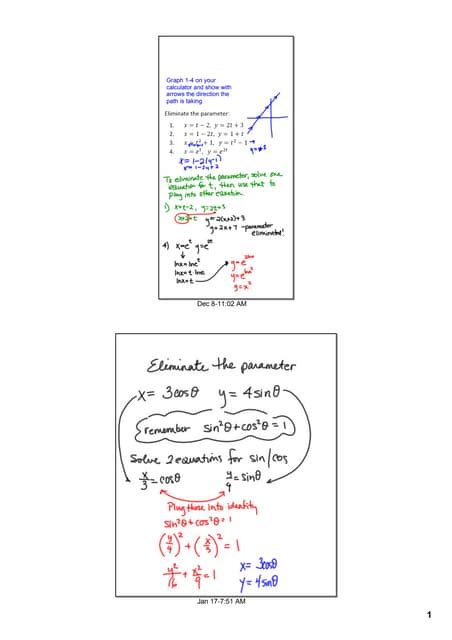 Graph 1-4 on your
calculator and show with
arrows the direction the
path is taking
Eliminate the parameter:
1. x = t − 2, y = 2t + 3
2. x = 1 − 2t, y = 1 + t
3. + 1, y = t² − 1
4. x = eᵗ, y = e²ᵗ
x = 1-2(y-1)
To eliminate the parameter, solve one
equation for t, then use that to
plug into other equation
1) x=t-2, y=2t+3
x+2=t y=2(x+2)+3
y=2x+7 -parameter
eliminated!
4) x=eᵗ y=e²ᵗ
lnx=lneᵗ
lnx=t·lne
lnx=t
y=x²
Dec 8-11:02 AM
Eliminate the parameter
x= 3cosθ y = 4sinθ
remember sin²θ+cos²θ=1
Solve 2 equations for sin/cos
x/3=cosθ y/4=sinθ
Plug those into identity
sin²θ+cos²θ=1
(y/4)²+(x/3)²=1
y²/16+x²/9=1
x= 3cosθ
y= 4sinθ
Jan 17-7:51 AM
1